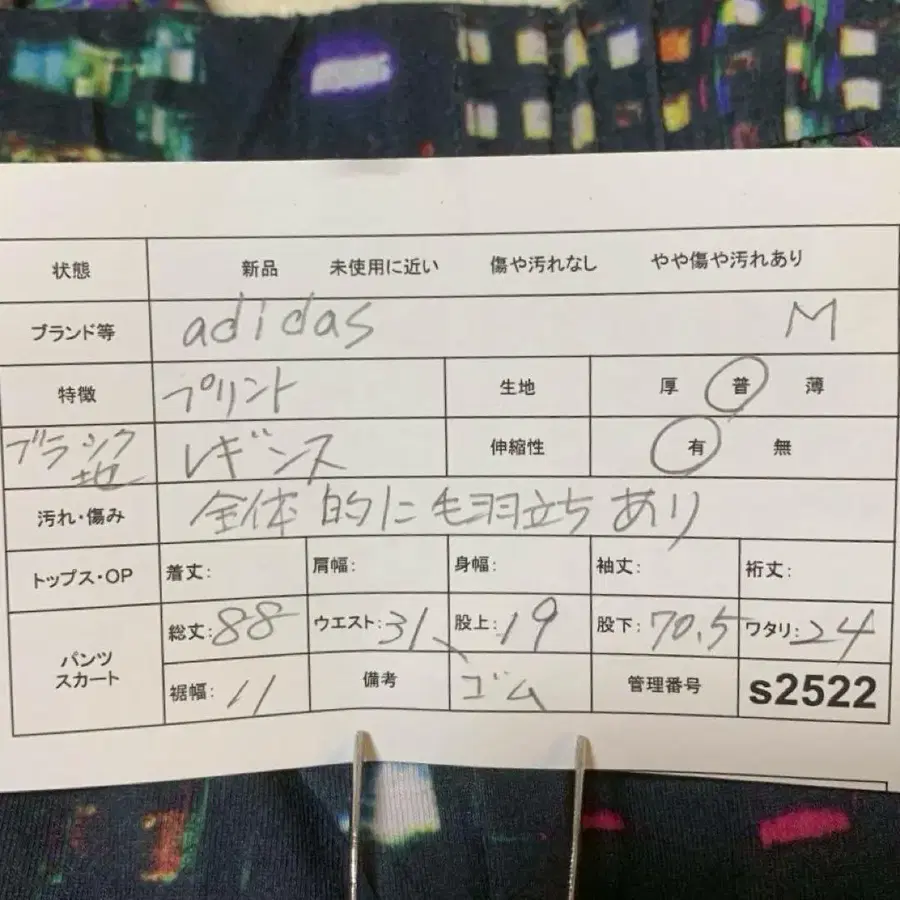 状態 新品 未使用に近い 傷や汚れなし やや傷や汚れあり
ブランド等 adidas M
特徴 プリント 生地 厚 普 薄
ブラック地 レギンス 伸縮性 有 無
汚れ・傷み 全体的に毛羽立ちあり
トップス・OP 着丈: 肩幅: 身幅: 袖丈: 裄丈:
パンツ スカート 総丈:88 ウエスト:31、 股上:19 股下:70.5 ワタリ:24
裾幅:11 備考 ゴム 管理番号 s2522